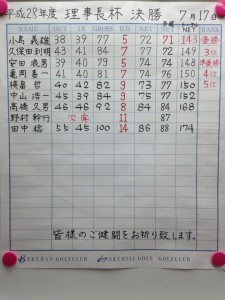 平成28年度 理事長杯 決勝 7月17日
NAME OUT IN GROSS HD NET NET RANK
小島 義雄 38 39 77 5 71 143 優勝
久保田明利 43 41 84 7 77 147 3位
安田 浪男 39 40 79 5 74 145 準優勝
亀岡 善一 41 40 81 7 74 4位
横畠 哲 40 42 82 9 73 150 5位
中山 浩一 45 39 84 9 75 152
高橋 久男 46 46 92 8 84 168
野村 幹行 欠席 11 87
田中 稔 55 45 100 14 86 88 174
皆様のご健闘をお祈り致します。
SKYBAY GOLFCLUB SKYHILL GOLF GOLFCLUB